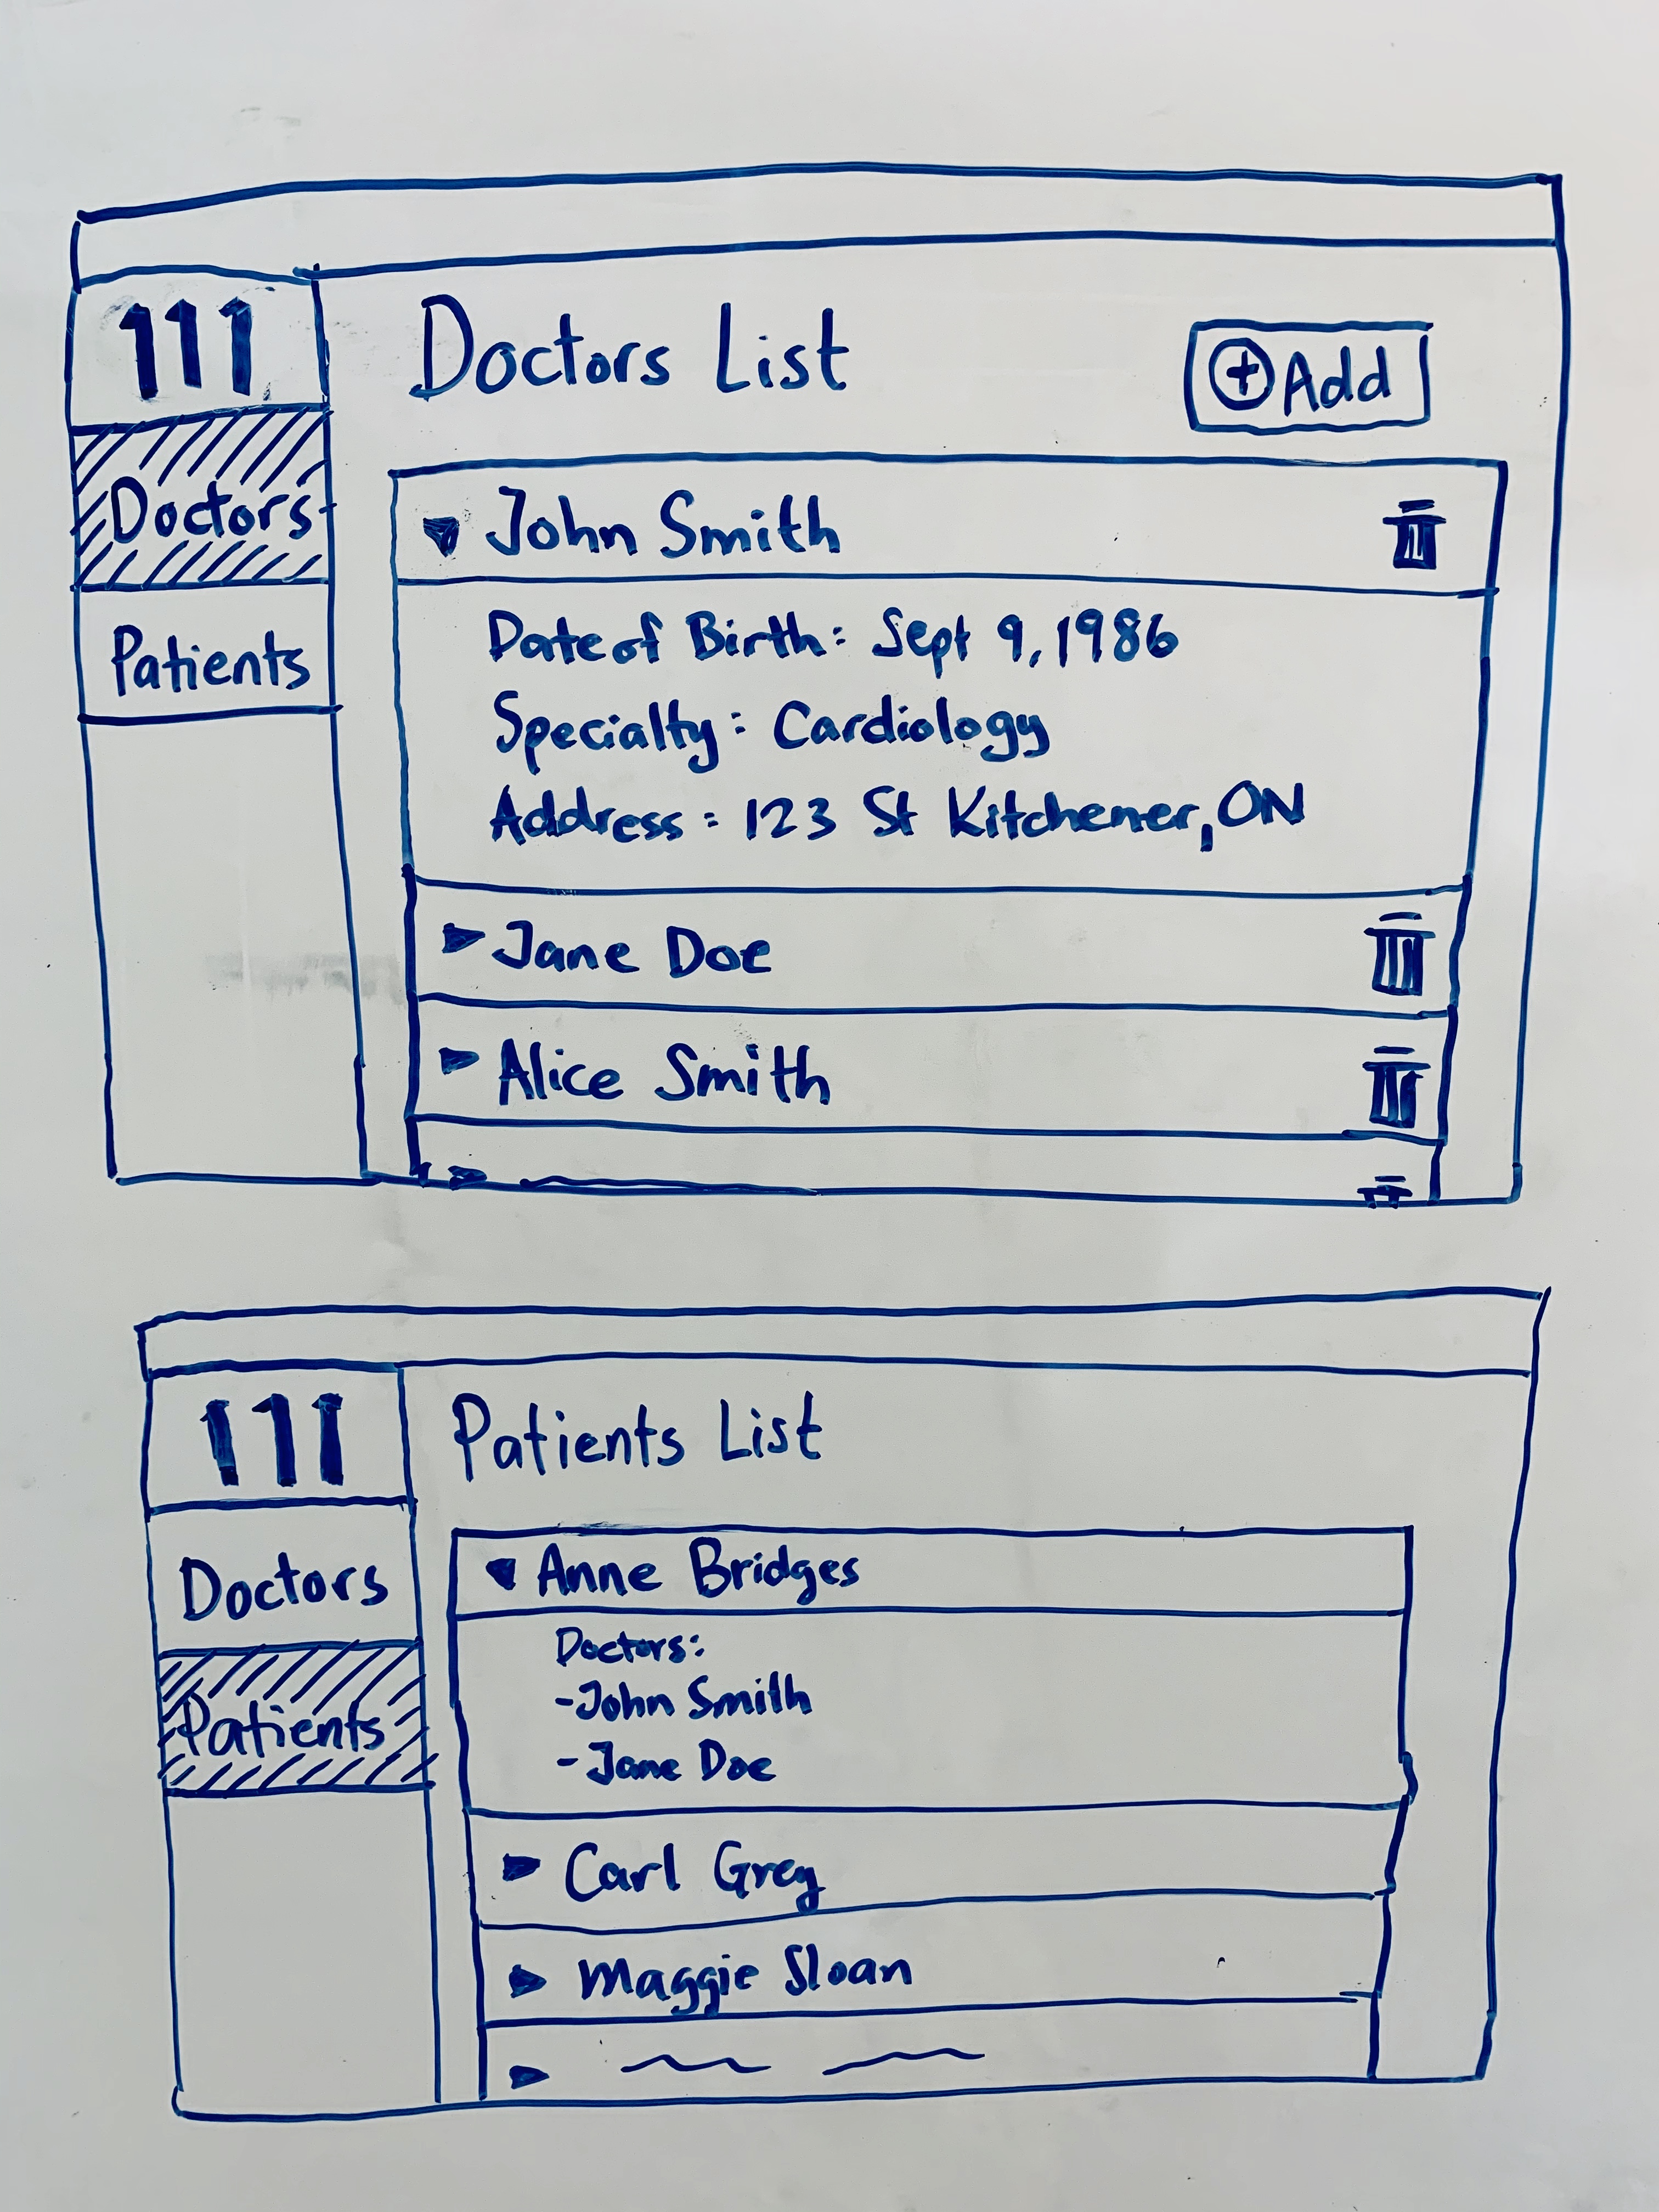 111
Doctors
Patients
Doctors List
+ Add
John Smith
Date of Birth: Sept 9, 1986
Specialty: Cardiology
Address: 123 St Kitchener, ON
Jane Doe
Alice Smith
111
Doctors
Patients
Patients List
Anne Bridges
Doctors:
-John Smith
-Jane Doe
Carl Grey
Maggie Sloan